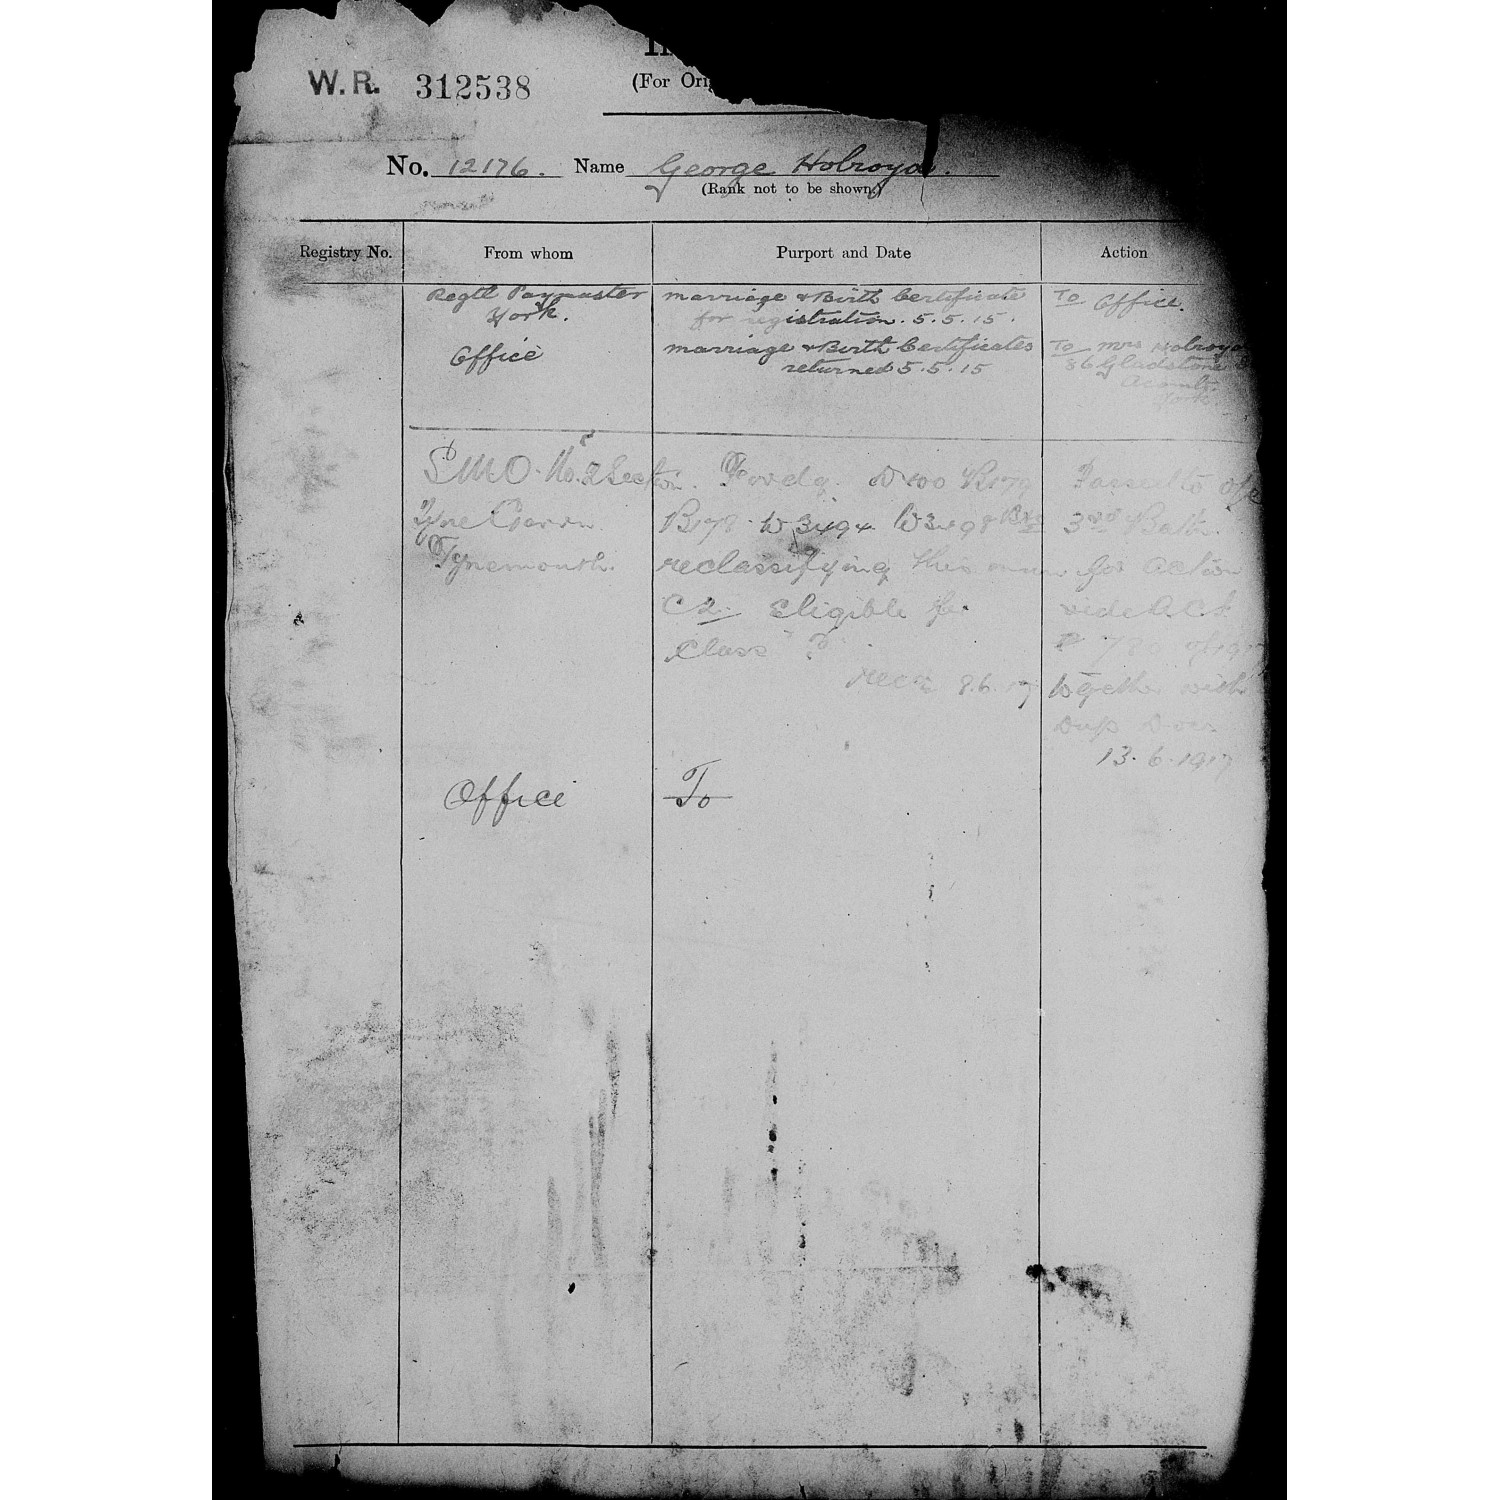 (For
W.R. 312538
No. 12176. Name George Holroyd.
(Rank not to be shown.)
Registry No. From whom Purport and Date Action
Regtl Paymaster marriage & Birth Certificate To Office.
York. for registration. 5.5.15.
Office marriage & Birth Certificates To Mrs Holroyd
returned 5.5.15 86 Gladstone
Acomb.
York.
S.M.O. No. 2 Section. Fowdg. B179 Passed to
Tyne B178. W3494. 3rd Batt.
Tynemouth. reclassifying this man for action
C2. Eligible for vide A.C.I.
Class P 780 of 1917
8.6.17 together with
Dup
13.6.1917
Office To